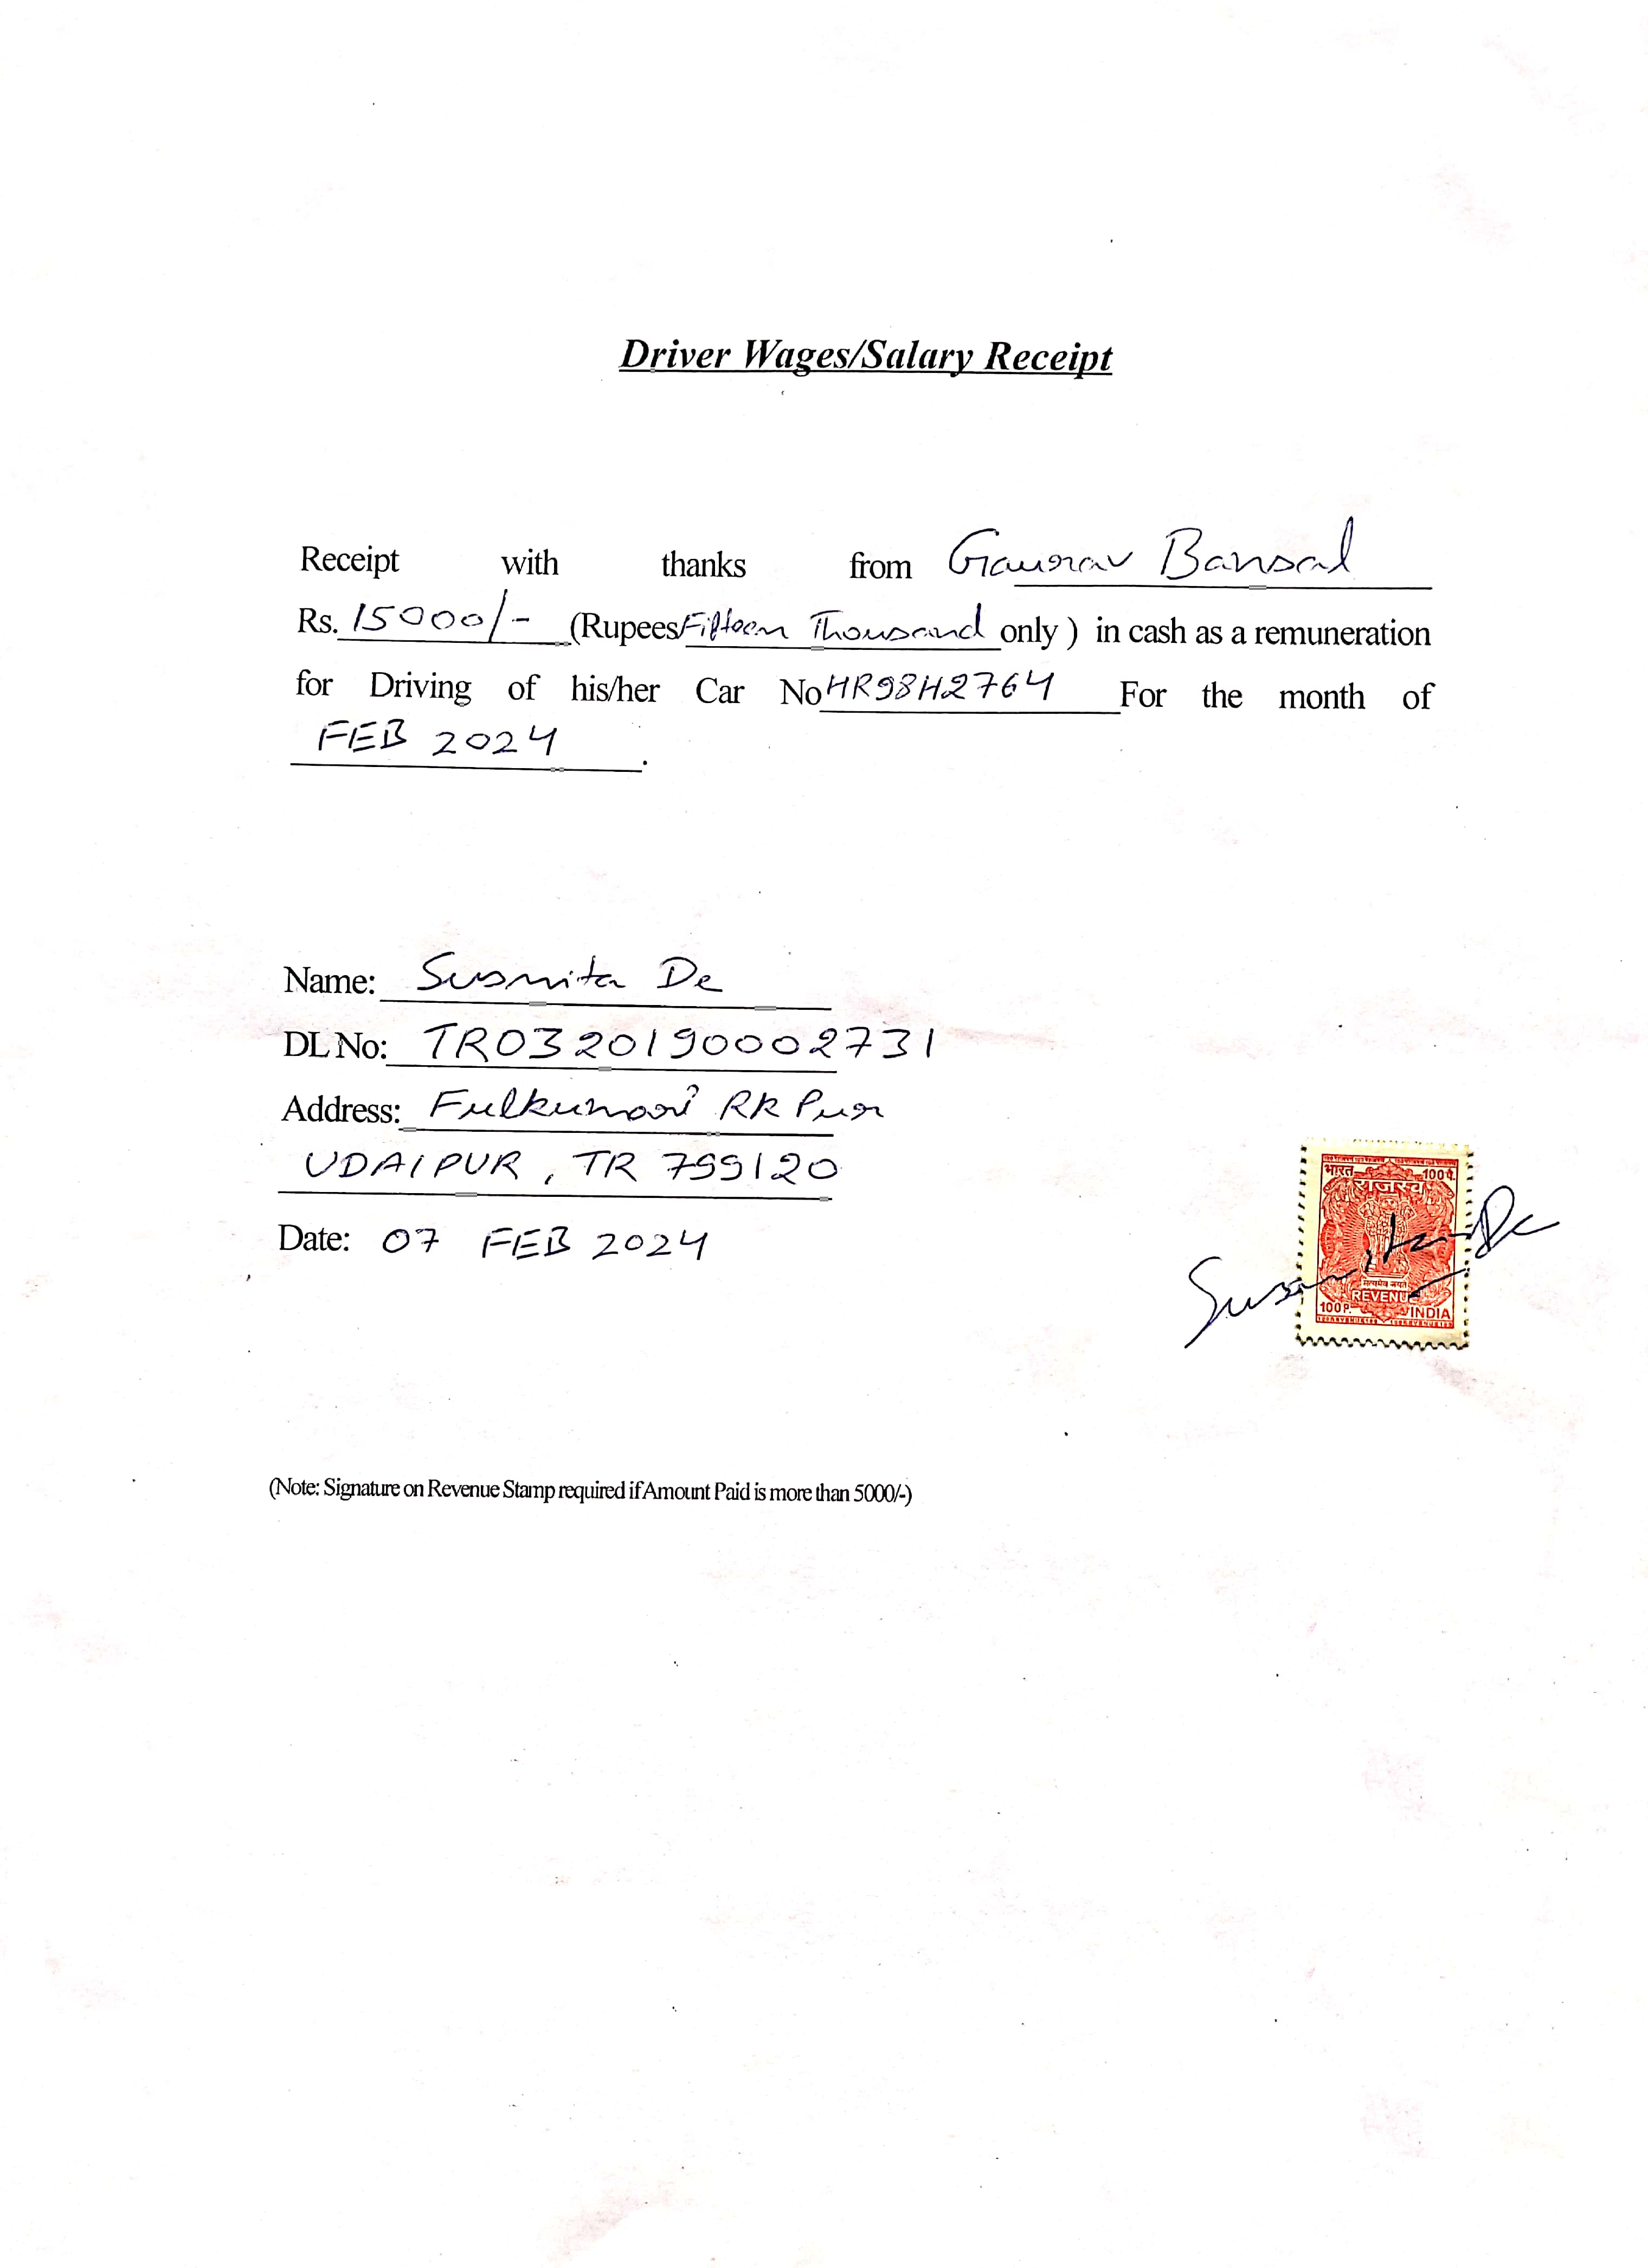 Driver Wages/Salary Receipt
Receipt with thanks from Gaurav Bansal
Rs. 15000/- (Rupees Fifteen Thousand only ) in cash as a remuneration
for Driving of his/her Car No HR98H2764 For the month of
FEB 2024.
Name: Susmita De
DL No: TR0320190002731
Address: Fulkumari RK Pur
UDAIPUR, TR 799120
Date: 07 FEB 2024
भारत 100 प.
राजस्व
सत्यमेव जयते
REVENUE
100 P. INDIA
Susmita De
(Note: Signature on Revenue Stamp required if Amount Paid is more than 5000/-)